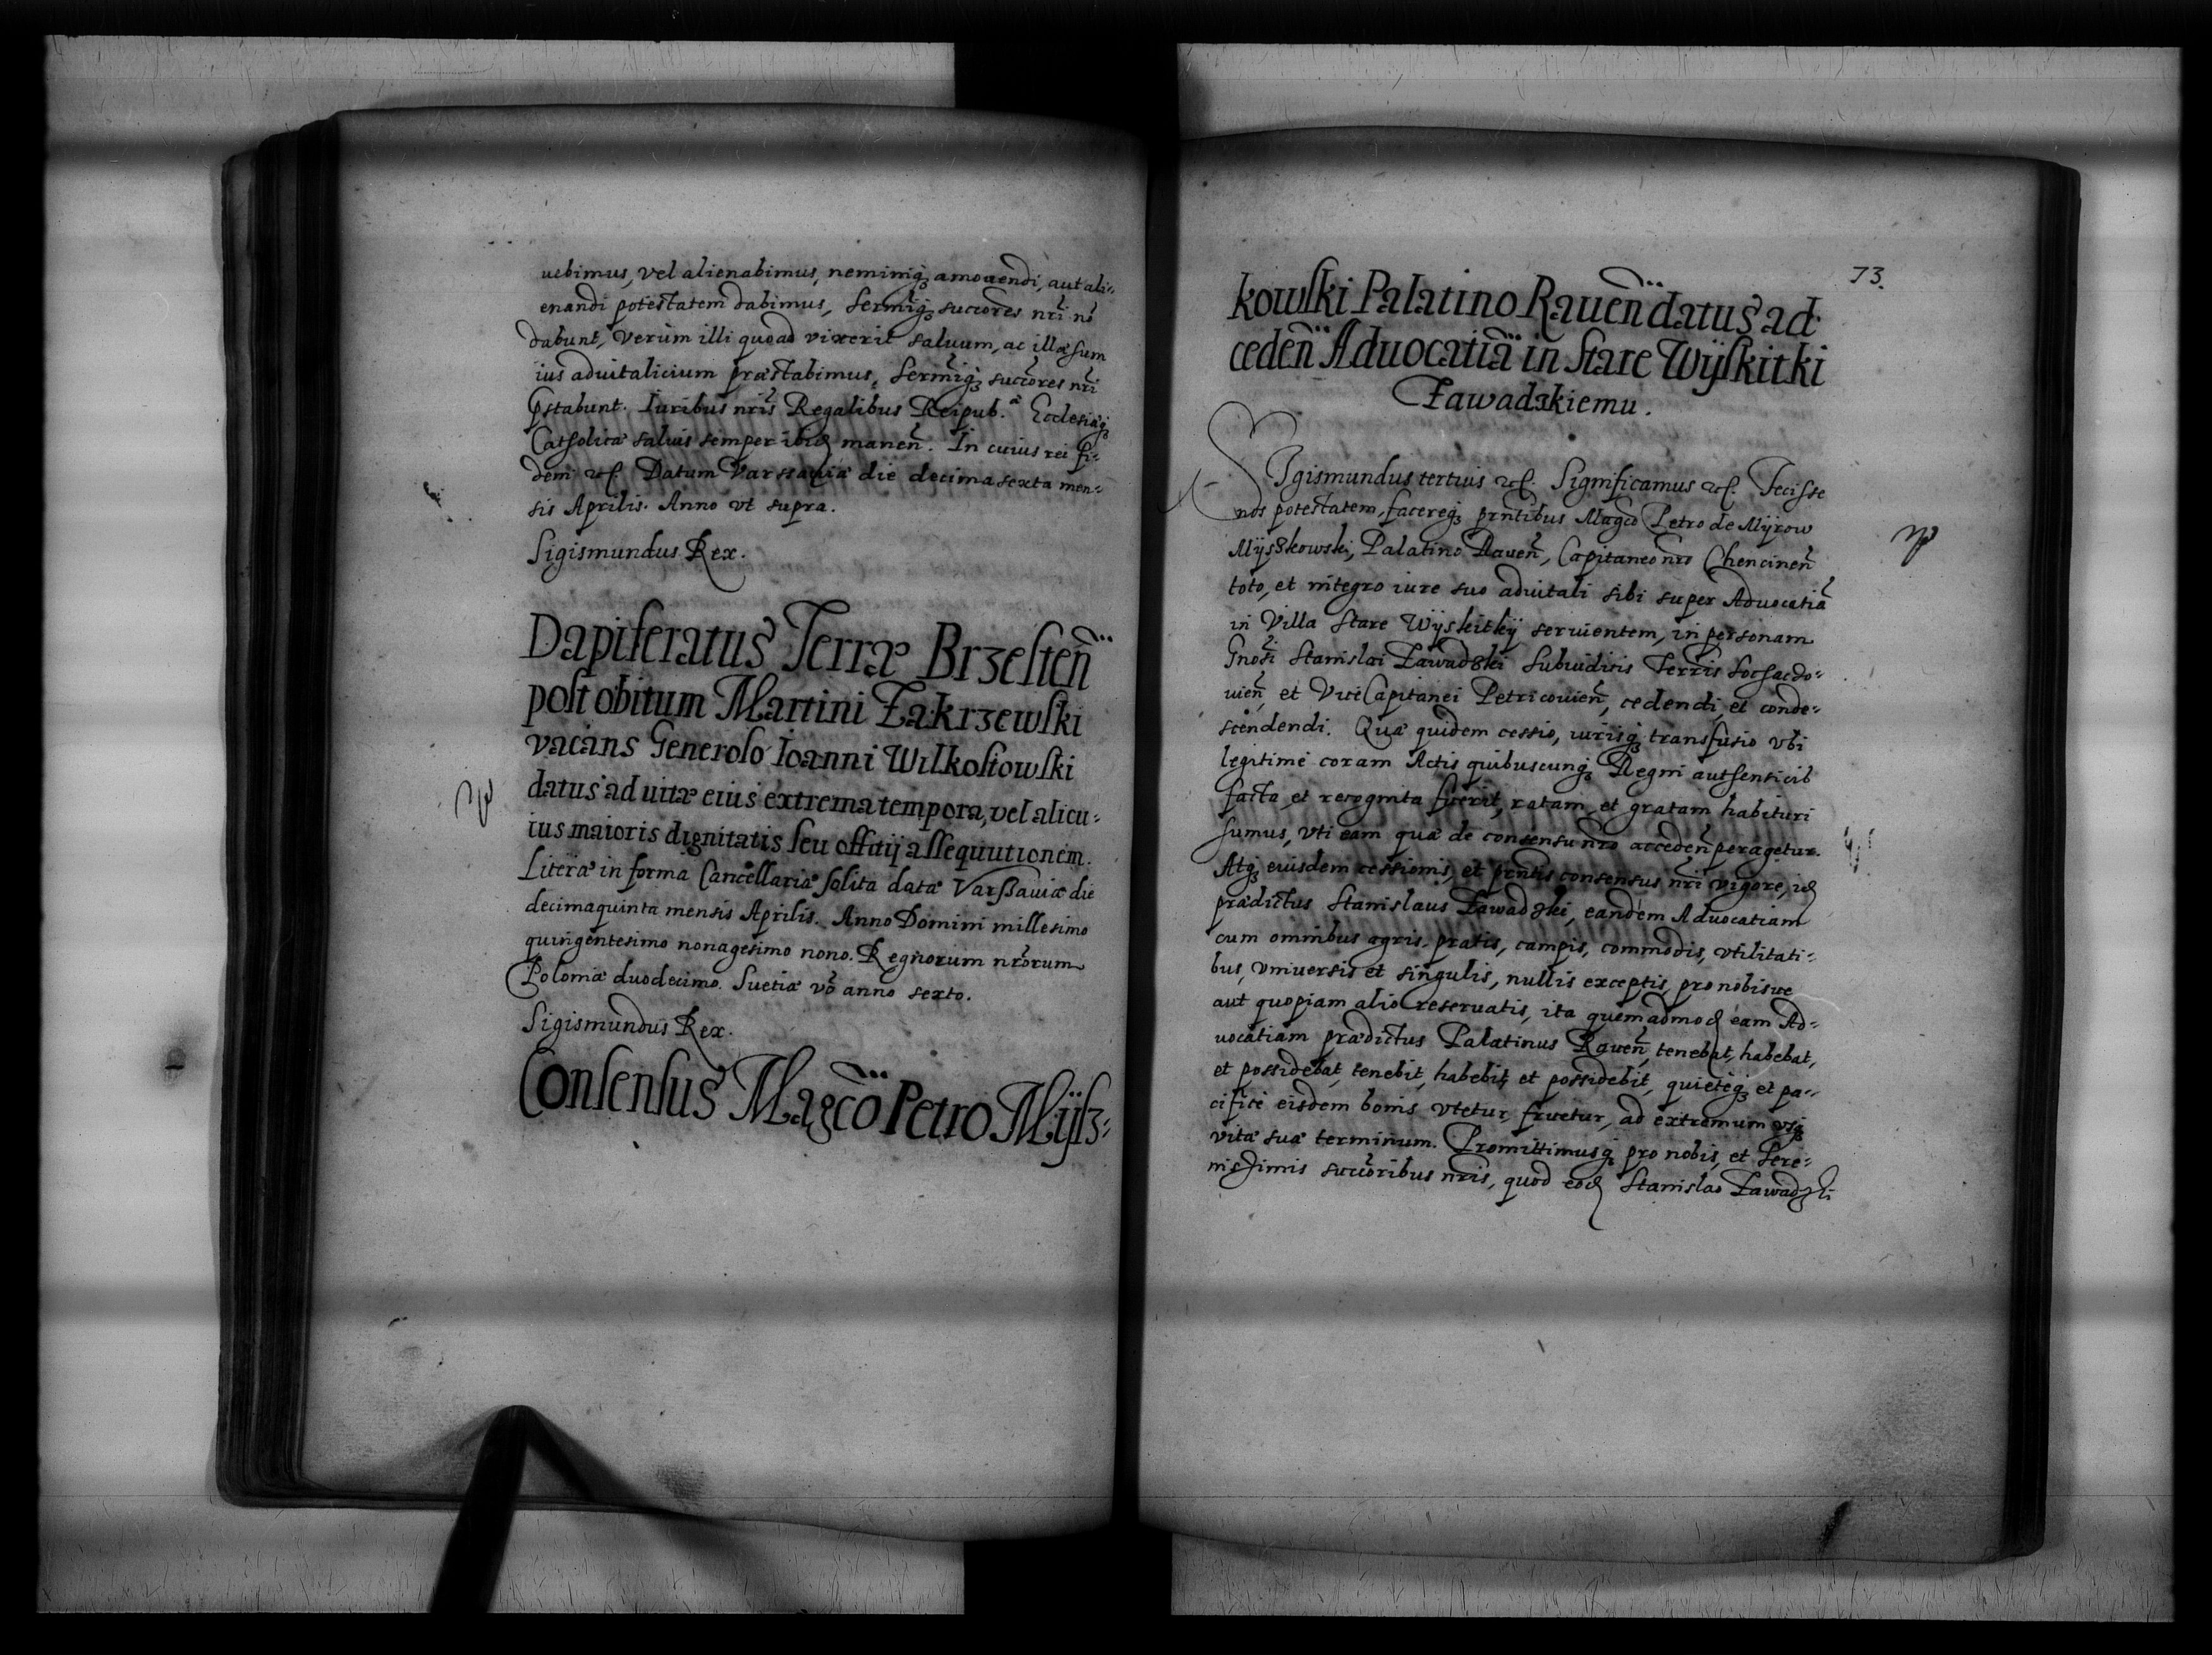 uebimus, vel alienabimus, neminiq3 amouendi, aut ali-
enandi potestatem dabimus, Sermiq3 succores nri nō
dabunt, Verùm illi quoad vixerit saluum, ac illæsum
ius aduitalicium præstabimus, Sermiq3 succores nri
pstabunt. Iuribus nris Regalibus Reipub. Ecclesiæq3
Catholicæ saluis semper ibid manen. In cuius rei fi-
dem etc. Datum Varssauiæ die decima sexta men-
sis Aprilis. Anno vt supra.
Sigismundus Rex.
Dapiferatus Terræ Brzesten
post obitum Martini Zakrzewski
vacans Generoso Ioanni Wilkostowski
datus ad uitæ eius extrema tempora, vel alicu-
ius maioris dignitatis seu offitij assequutionem.
Literæ in forma Cancellariæ solita datæ Varßauiæ die
decimaquinta mensis Aprilis. Anno Domini millesimo
quingentesimo nonagesimo nono. Regnorum nrorum
Poloniæ duodecimo. Suetiæ vō anno sexto.
Sigismundus Rex.
Consensus Magcō Petro Mijs3-
73.
kowski Palatino Rauen datus ad
ceden Aduocatiā in Stare Wijskitki
Zawadzkiemu.
SIgismundus tertius etc. Significamus etc. Fecisse
nos potestatem, facereq3 prntibus Magco Petro de Mijrow
Mijszkowski, Palatino Rauen, Capitaneo nro Chencinen
toto, et integro iure suo aduitali sibi super Aduocatiā
in Villa Stare Wijskitkij seruientem, in personam
Gnosi Stanislai Zawadzki Subiudicis Terris Sochaczo-
uien, et ViceCapitanei Petricouien, cedendi, et conde-
scendendi. Quæ quidem cessio, iurisq3 transfusio vbi
legitimè coram Actis quibuscunq3 Regni authenticis
facta et recognita fuerit, ratam et gratam habituri
sumus, vti eam quæ de consensu nro acceden peragetur.
Atq3 eiusdem cessionis, et prntis consensus nri vigore, id
prædictus Stanislaus Zawadzki, eandem Aduocatiam
cum omnibus agris, pratis, campis, commodis, vtilitati-
bus, vniuersis et singulis, nullis exceptis, pro nobisue
aut quopiam alio reseruatis, ita quemadmod eam Ad-
uocatiam prædictus Palatinus Rauen, tenebat, habebat,
et possidebat, tenebit, habebit, et possidebit, quietèq3 et pa-
cificè eisdem bonis vtetur, fruetur, ad extremum vsq3
vitæ suæ terminum. Promittimusq3 pro nobis, et Sere-
nissimis succoribus nris, quod eod Stanislao Zawadzki